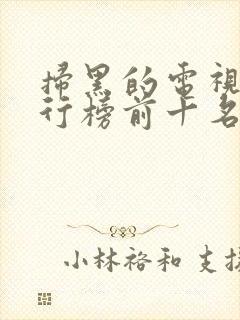 掃黑的電視
行榜前十名
小林裕和 支援